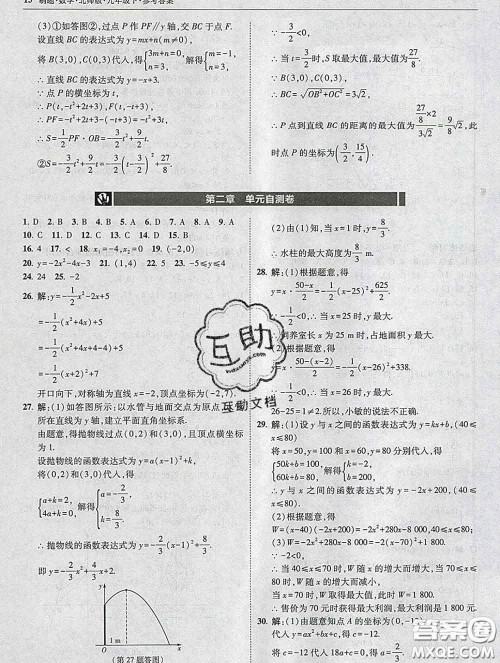 13 刷题·数学·北师版·九年级下·参考答案
(3)①如答图2,过点P作PF∥y轴,交BC于点F.
设直线BC的表达式为y=mx+n(m≠0),
将B(3,0),C(0,3)代入,得{3m+n=0, n=3. 解得{m=-1, n=3.
∴直线BC的表达式为y=-x+3.
∵点P的横坐标为t,
∴P(t,-t²+2t+3),F(t,-t+3).
∴PF=-t²+2t+3-(-t+3)=-t²+3t.
∴S=1/2PF·OB=-3/2t²+9/2t.
②S=-3/2t²+9/2t=-3/2(t-3/2)²+27/8
∵-3/2<0,
∴当t=3/2时,S取最大值,最大值为27/8.
∵B(3,0),C(0,3),
∴BC=√(OB²+OC²)=3√2,
∴P点到直线BC的距离的最大值为(27/8×2)/(3√2)=9√2/8,此
时点P的坐标为(3/2,15/4).
第二章 单元自测卷
16. 4 17. < 18. x₁=-4,x₂=0 19. (-2,0)
20. y=-2x²-4x-3 21. (1,4) 22. >5 23. -5≤y≤4
24. 24 25. -2
26. 解:y=-1/2x²-2x+5
=-1/2(x²+4x+4-4)+5
=-1/2(x+2)²+7
开口向下,对称轴为直线x=-2,顶点坐标为(-2,7).
27. 解:(1)如答图所示;以水管与地面交点为原点
建立平面直角坐标系.
由题意,得抛物线过点(0,2)和(3,0),且顶点横坐标
为1.
设抛物线的函数表达式为y=a(x-1)²+h,
将(0,2)和(3,0)代入,得
{a+h=2, 4a+h=0. 解得{a=-2/3, h=8/3.
∴抛物线的函数表达式为y=-2/3(x-1)²+8/3.
即y=-2/3x²+4/3x+2.
y
1 m
x
(第27题答图)
(2)由(1)知,当x=1时,y=8/3.
∴水柱的最大高度为8/3 m.
28. 解:(1)根据题意,得
y=x·(50-x)/2=-1/2(x-25)²+625/2
∵-1/2<0,
∴当x=25时,y最大.
∴饲养室长x为25 m时,占地面积y最大.
(2)根据题意,得
y=x·(50-(x-2))/2=-1/2(x-26)²+338.
∵-1/2<0,
∴当x=26时,y最大.
26-25=1≠2.所以,小敏的说法不正确.
29. 解:(1)设y与x之间的函数表达式为y=kx+b,(40
≤x≤80)
将x=50,y=100和x=60,y=80分别代入,得
{50k+b=100, 60k+b=80. 解得{k=-2, b=200,
∴y与x之间的函数表达式为y=-2x+200,(40
≤x≤80)
(2)根据题意,得
W=(x-40)(-2x+200)=-2x²+280x-8 000.
(3)W=-2x²+280x-8 000=-2(x-70)²+1 800.(40
≤x≤80)
∵-2<0,
∴当40≤x≤70时,W随x的增大而增大;当70≤x≤80时,W随x
的增大而减小.
∴当x=70时,W取最大值,最大值为1 800.
∴售价为70元时获得最大利润,最大利润是1 800元.
30. 解:(1)由题意知点A的坐标为(0,-12),
代入,得c=-12.
将x=18,c=-12代入,得18a+c=0,
互助
互動文档
答案圈
MXQE.COM